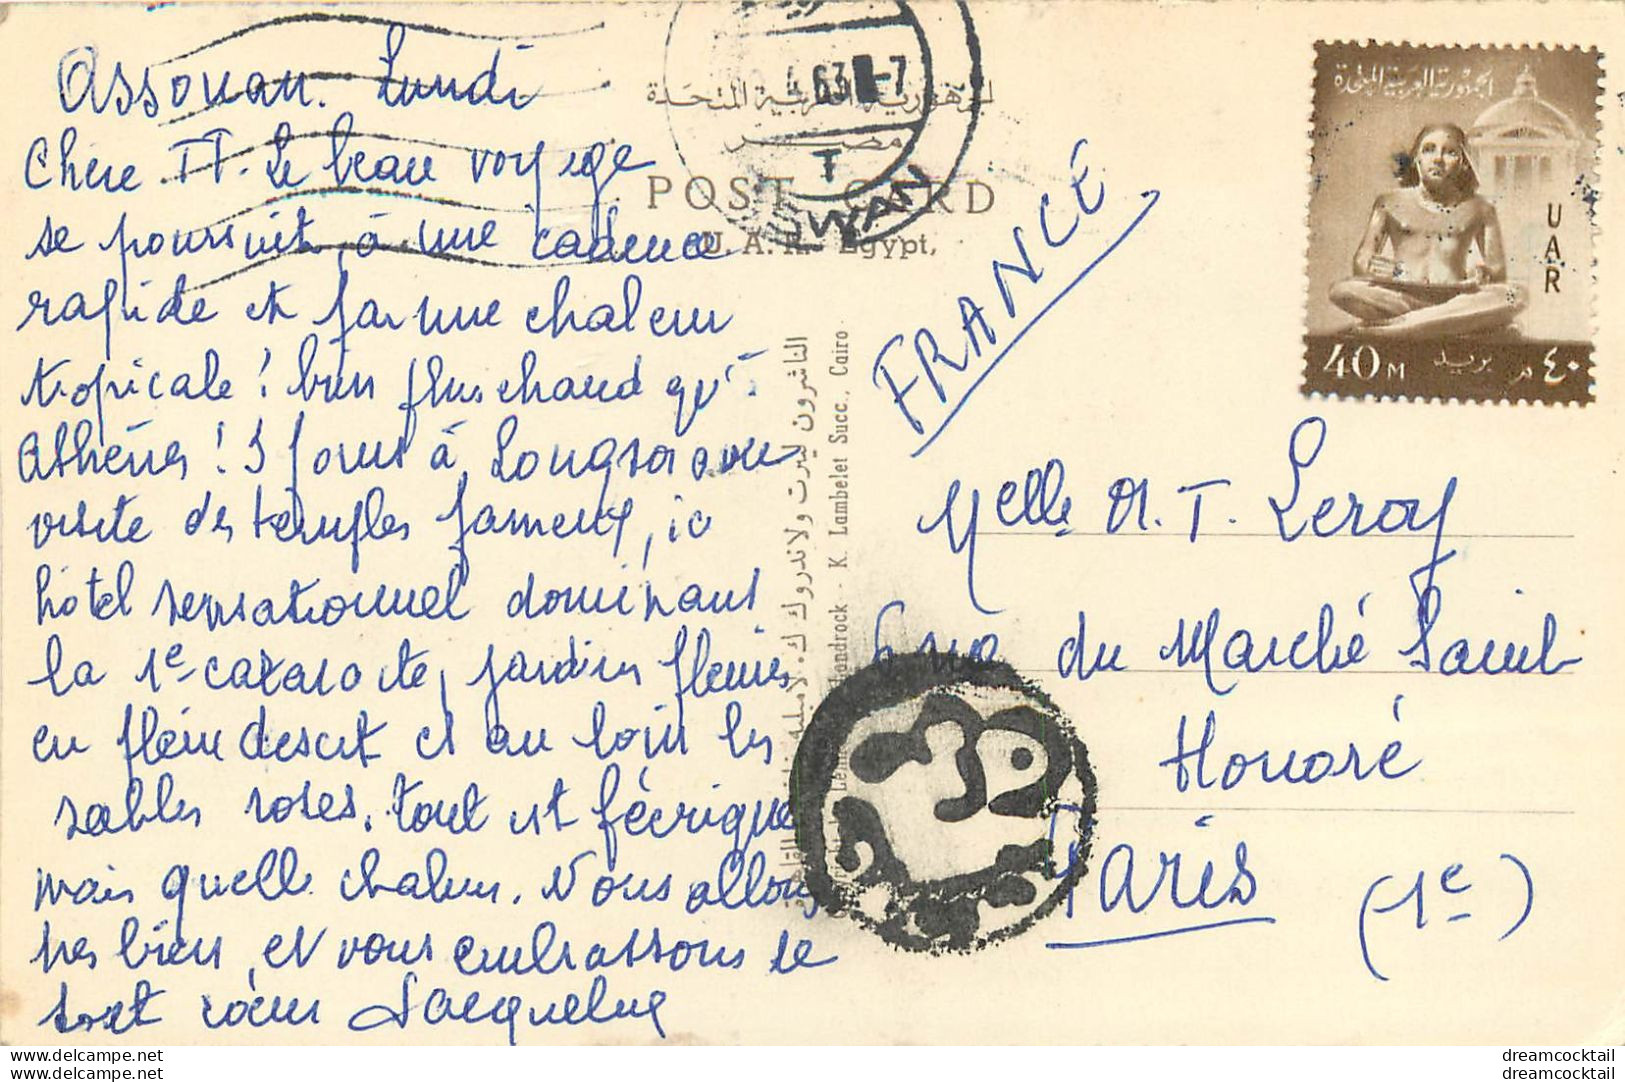 Assouan. Lundi
Chère TT. Le beau voyage
se poursuit, à une cadence
rapide et par une chaleur
tropicale ! bien plus chaud qu'à
Athènes ! 3 jours à Louqsor avec
visite des temples fameux, ici
hôtel sensationnel dominant
la 1e cataracte, jardins fleuris
en plein desert et au loin les
sables roses. Tout est féerique
mais quelle chaleur. Nous allons
tres bien, et vous embrassons de
tout cœur Jacqueline
الجمهورية العربية المتحدة
مصر
POST CARD
U. A. R. Egypt,
4 63 -7
T
ASWAN
الناشرون لينرت ولاندروك ك. لامبليه
Landrock - K. Lambelet Succ., Cairo
FRANCE
الجمهورية العربية المتحدة
UAR
40 M بريد ٤٠ م
Melle M. T. Leroy
6 rue du Marché Saint
Honoré
PARIS (1e)
delcampe.net
delcampe.net
dreamcocktail
dreamcocktail